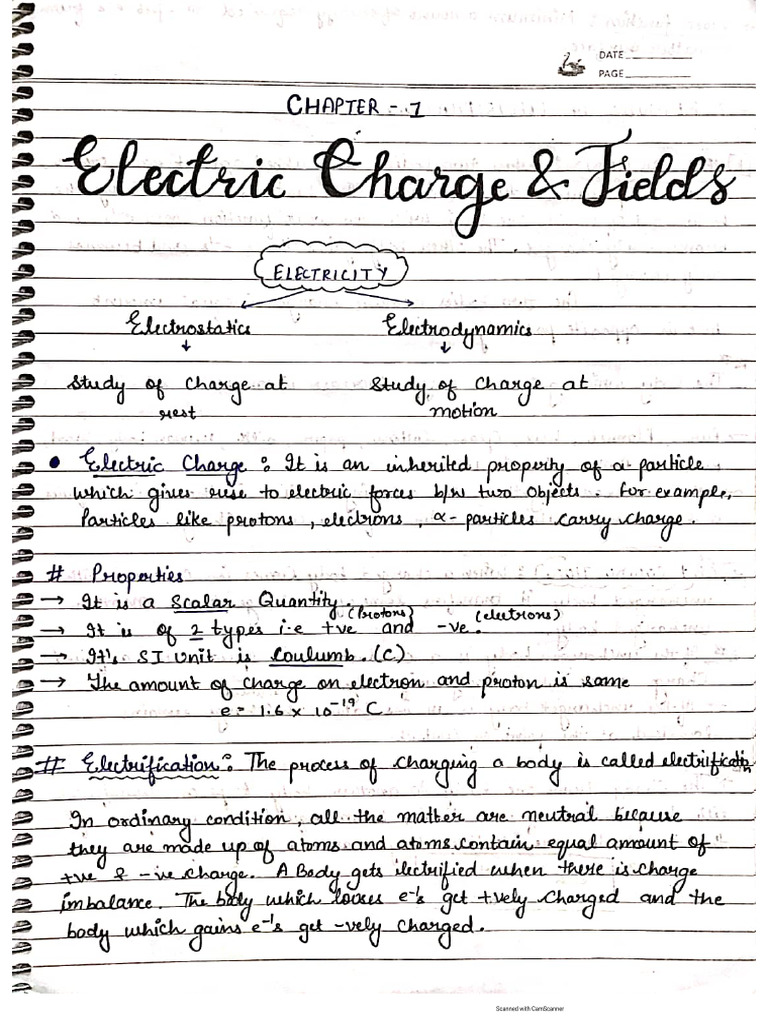 DATE
PAGE
CHAPTER - 1
Electric Charge & Fields
ELECTRICITY
Electrostatics Electrodynamics
Study of charge at Study of charge at
rest motion
• Electric Charge : It is an inherited property of a particle
which gives rise to electric forces b/w two objects. For example,
Particles like protons, electrons, α-particles carry charge.
# Properties
→ It is a scalar Quantity.
(Protons) (electrons)
→ It is of 2 types i.e +ve and -ve.
→ It's SI Unit is Coulumb. (C)
→ The amount of charge on electron and proton is same
e = 1.6 × 10⁻¹⁹ C
# Electrification : The process of charging a body is called electrification
In ordinary condition, all the matter are neutral because
they are made up of atoms and atoms contain equal amount of
+ve & -ve charge. A Body gets electrified when there is charge
imbalance. The body which looses e⁻'s get +vely charged and the
body which gains e⁻'s get -vely charged.
Scanned with CamScanner